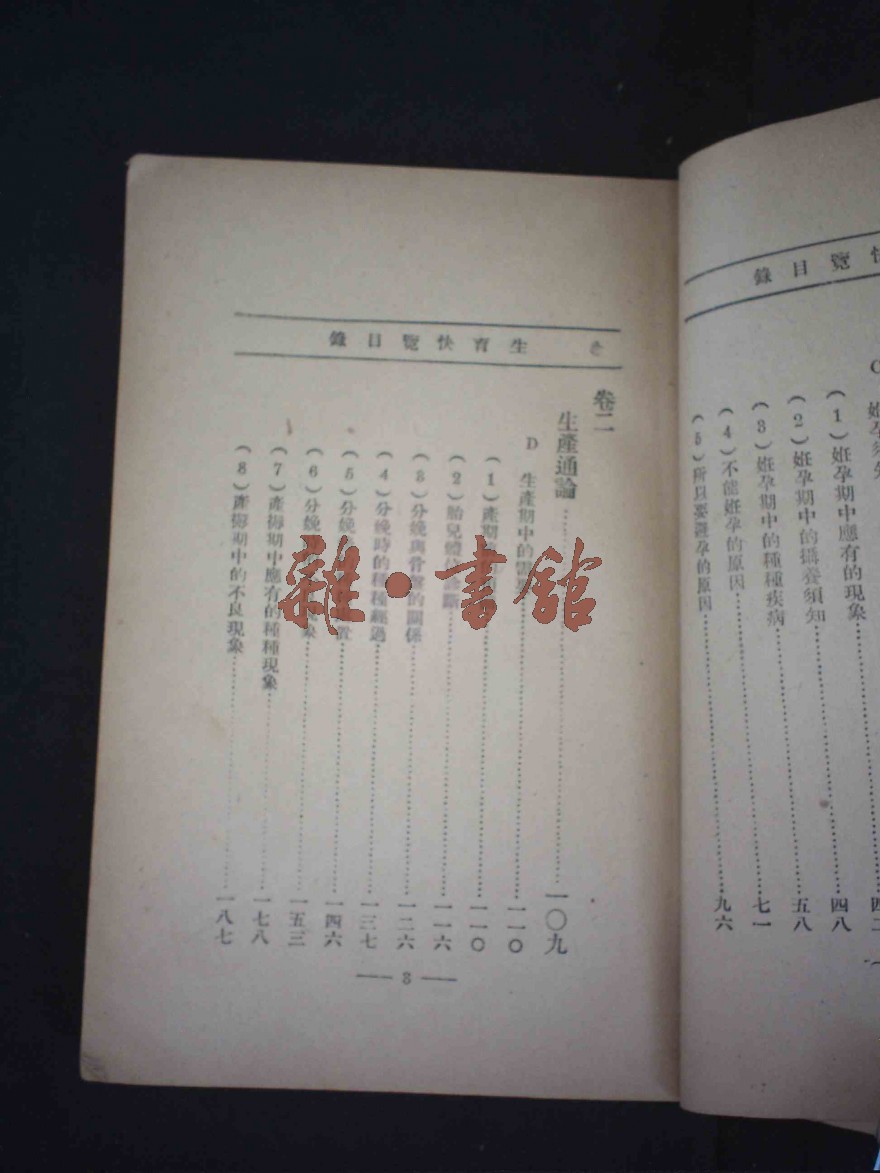 覽目錄
C
(1)姙孕期中應有的現象……四二
(2)姙孕期中的攝養須知……四八
(3)姙孕期中的種種疾病……五八
(4)不能姙孕的原因……七一
(5)所以要避孕的原因……九六
生育快覽目錄
卷二
生產通論……一〇九
D 生產期中的……一一〇
(1)產期……一一〇
(2)胎兒體位診斷……一一六
(3)分娩與骨盤的關係……一二六
(4)分娩時的種種經過……一三七
(5)分娩置……一四六
(6)分娩現象……一五三
(7)產褥期中應有的種種現象……一七八
(8)產褥期中的不良現象……一八七
— 3 —
雜·書館